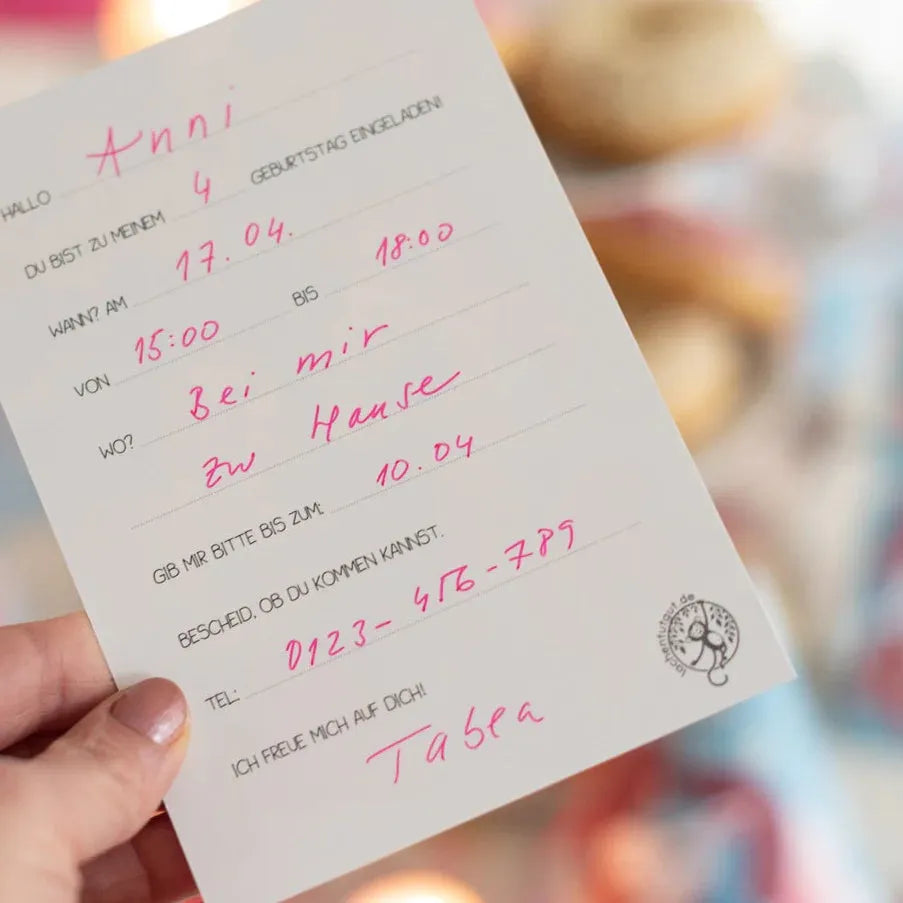 HALLO Anni
DU BIST ZU MEINEM 4 GEBURTSTAG EINGELADEN!
WANN? AM 17.04.
VON 15:00 BIS 18:00
WO? Bei mir
zu Hause
GIB MIR BITTE BIS ZUM: 10.04
BESCHEID, OB DU KOMMEN KANNST.
TEL: 0123-456-789
ICH FREUE MICH AUF DICH!
Tabea
lachentutgut.de